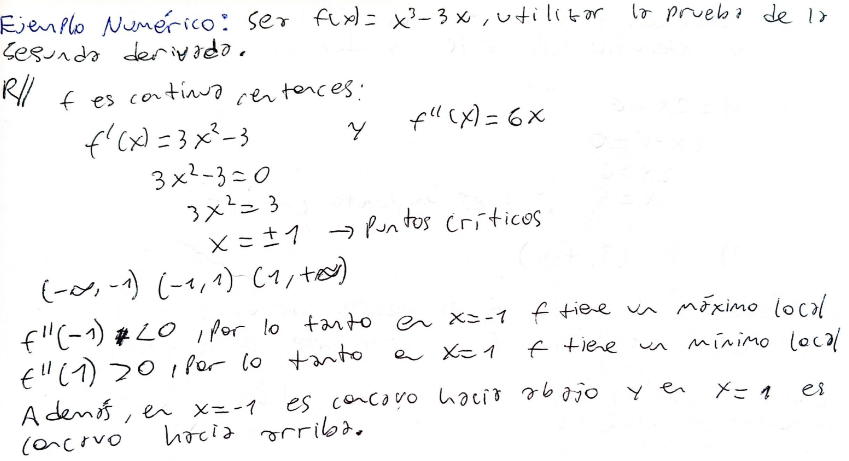 Ejemplo Numérico: Ser f(x) = x³-3x, utilizar la prueba de la
segunda derivada.
R// f es continua entonces:
f'(x) = 3x²-3 y f''(x) = 6x
3x²-3=0
3x²=3
x = ±1 → Puntos Críticos
(-∞,-1) (-1,1) (1,+∞)
f''(-1) <0, Por lo tanto en x=-1 f tiene un máximo local
f''(1) >0, Por lo tanto en x=1 f tiene un mínimo local
Además, en x=-1 es concavo hacia abajo y en x=1 es
concavo hacia arriba.